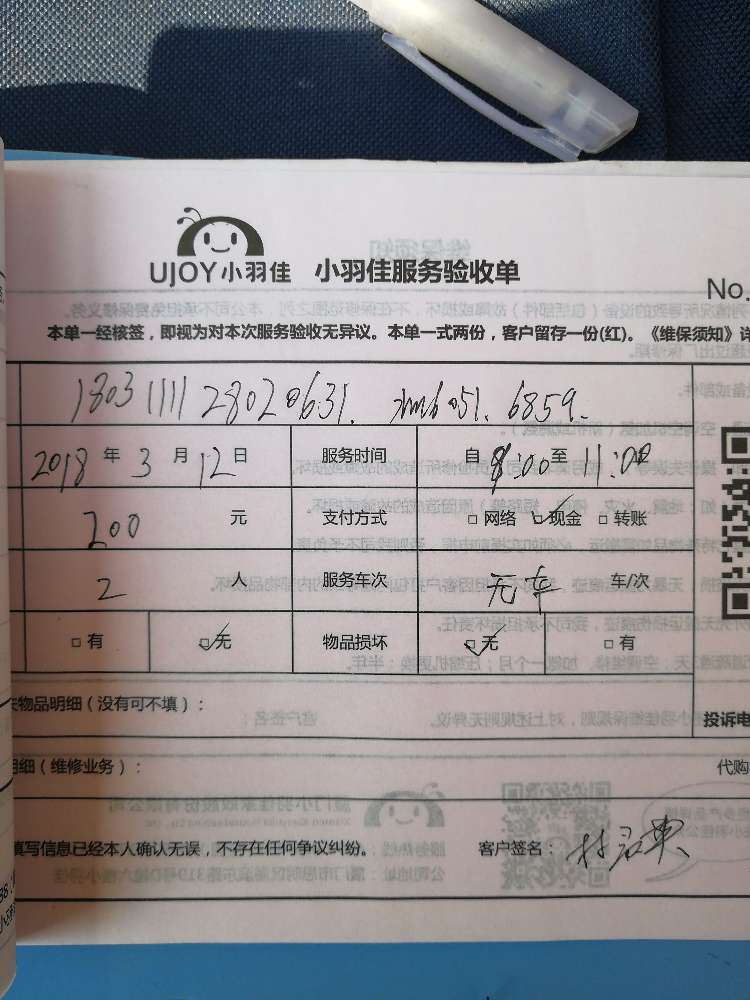 UJOY小羽佳 小羽佳服务验收单
No.
本单一经核签，即视为对本次服务验收无异议。本单一式两份，客户留存一份(红)。《维保须知》详
1803111128020631. 6859.
2018年3月12日 服务时间 自8:00至11:00
200 元 支付方式 □网络 ☑现金 □转账
2 人 服务车次 无车 车/次
□有 ☑无 物品损坏 ☑无 □有
物品明细（没有可不填）：
投诉电
明细（维修业务）：
代购
填写信息已经本人确认无误，不存在任何争议纠纷。 客户签名：